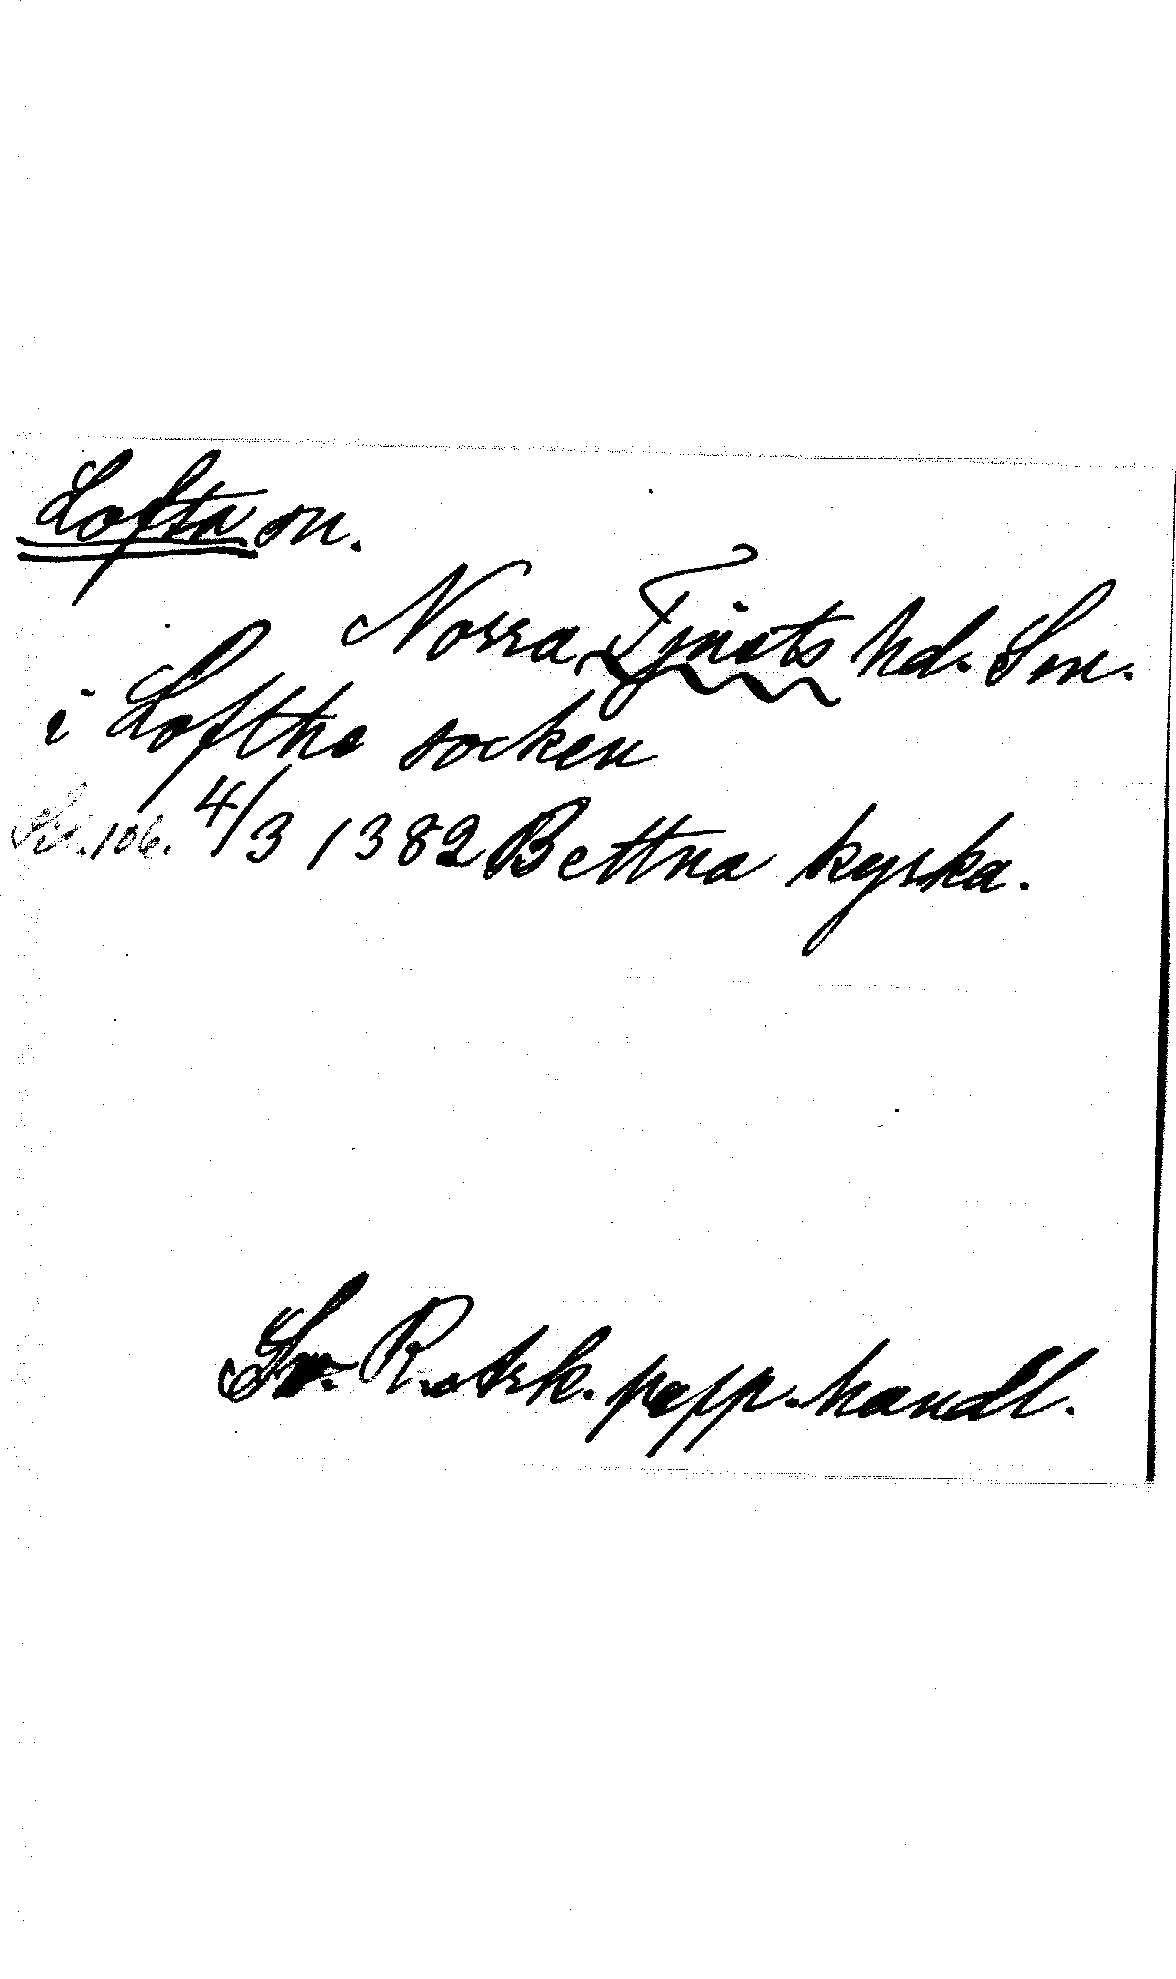 Lofta sn.
Norra Tjusts hd. Sm.
i Loftha socken
106. 4/3 1382 Bettna kyrka.
Sv. R. ark. papp. handl.